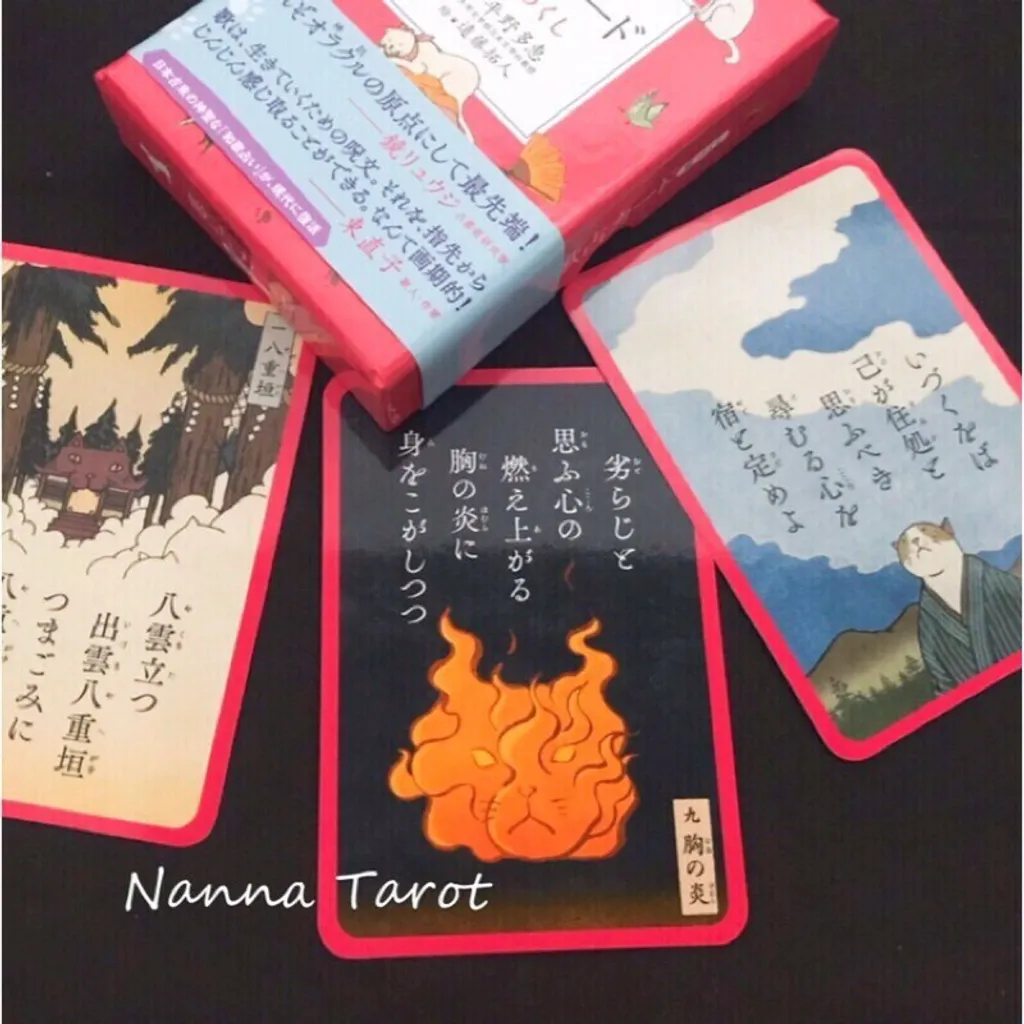 ード
づくし
平野多恵
後藤拓人
ぞオラクルの原点にして最先端!
鏡リュウジ
占星術研究家
歌は、生きていくための呪文。それを、指先から
じんじん感じ取ることができる。なんて画期的!
東直子
歌人・作家
日本古来の神聖な「和歌占い」が、現代に復活
一 八重垣
八雲立つ
出雲八重垣
つまごみに
八重
劣らじと
思ふ心の
燃え上がる
胸の炎に
身をこがしつつ
九 胸の炎
いづくをば
己が住処と
思ふべき
尋むる心を
宿と定めよ
Nanna Tarot